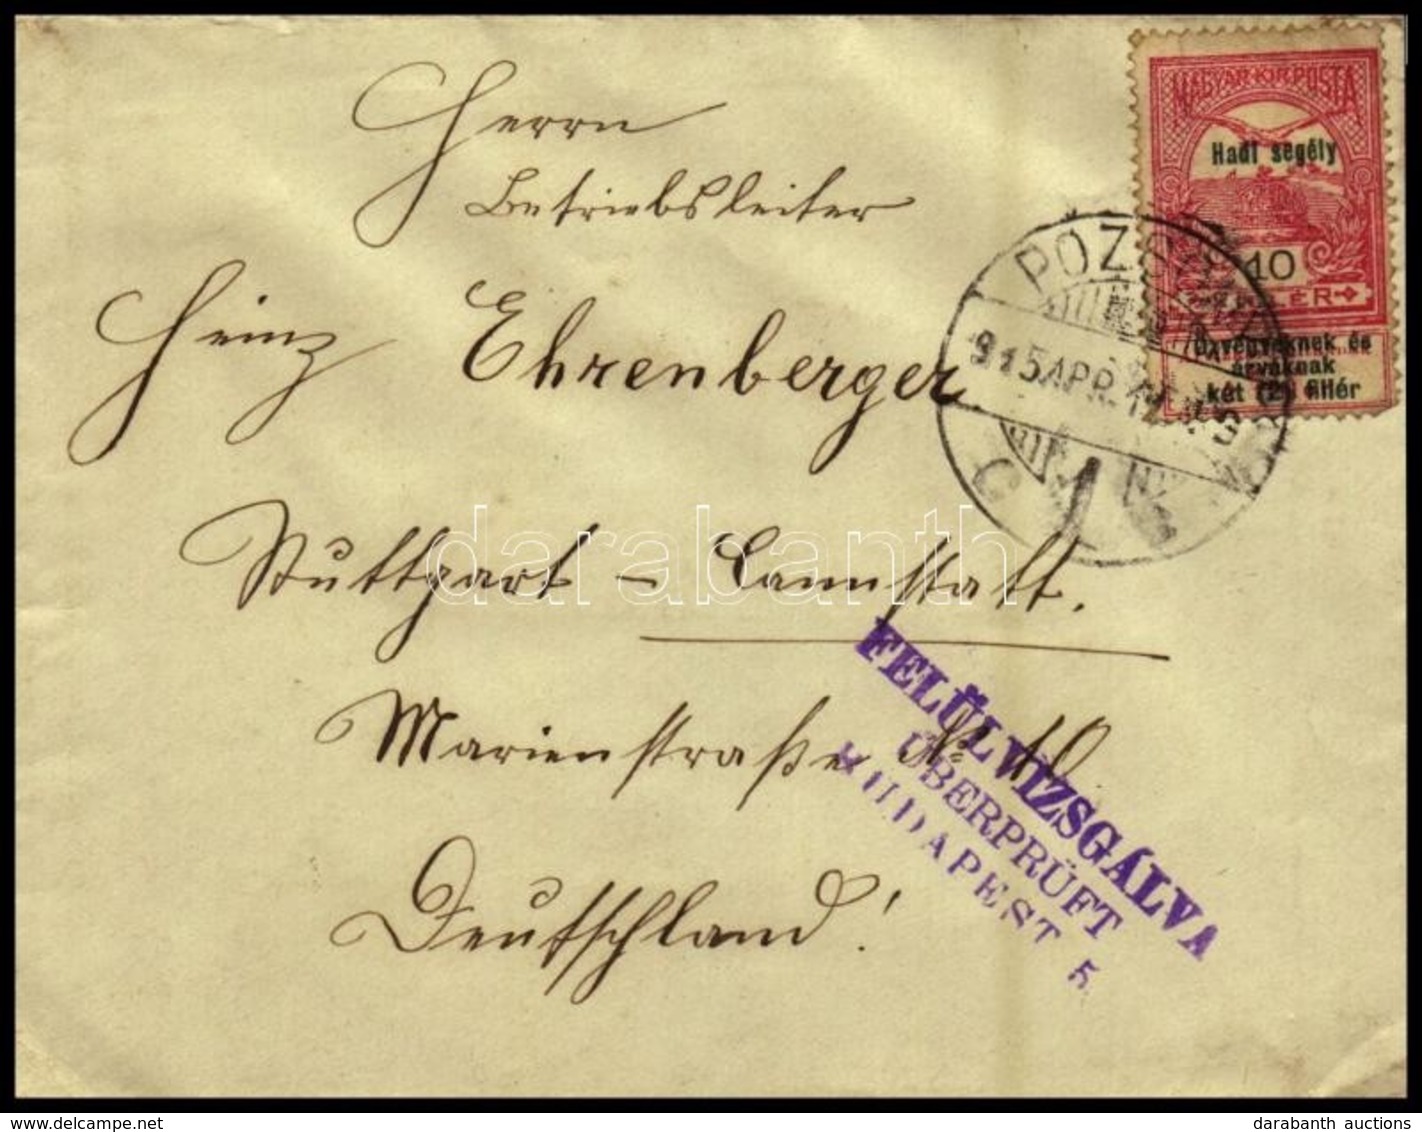 Herrn
Betriebsleiter
Heinz Ehrenberger
Stuttgart - Cannstatt.
Marienstraße No 40
Deutschland!
MAGYAR·KIR·POSTA
Hadi segély
10
Özvegyeknek és
árváknak
két (2) fillér
POZSONY
915 APR. 12
FELÜLVIZSGÁLVA
ÜBERPRÜFT
BUDAPEST 5
darabanth
delcampe.net
darabanth auctions